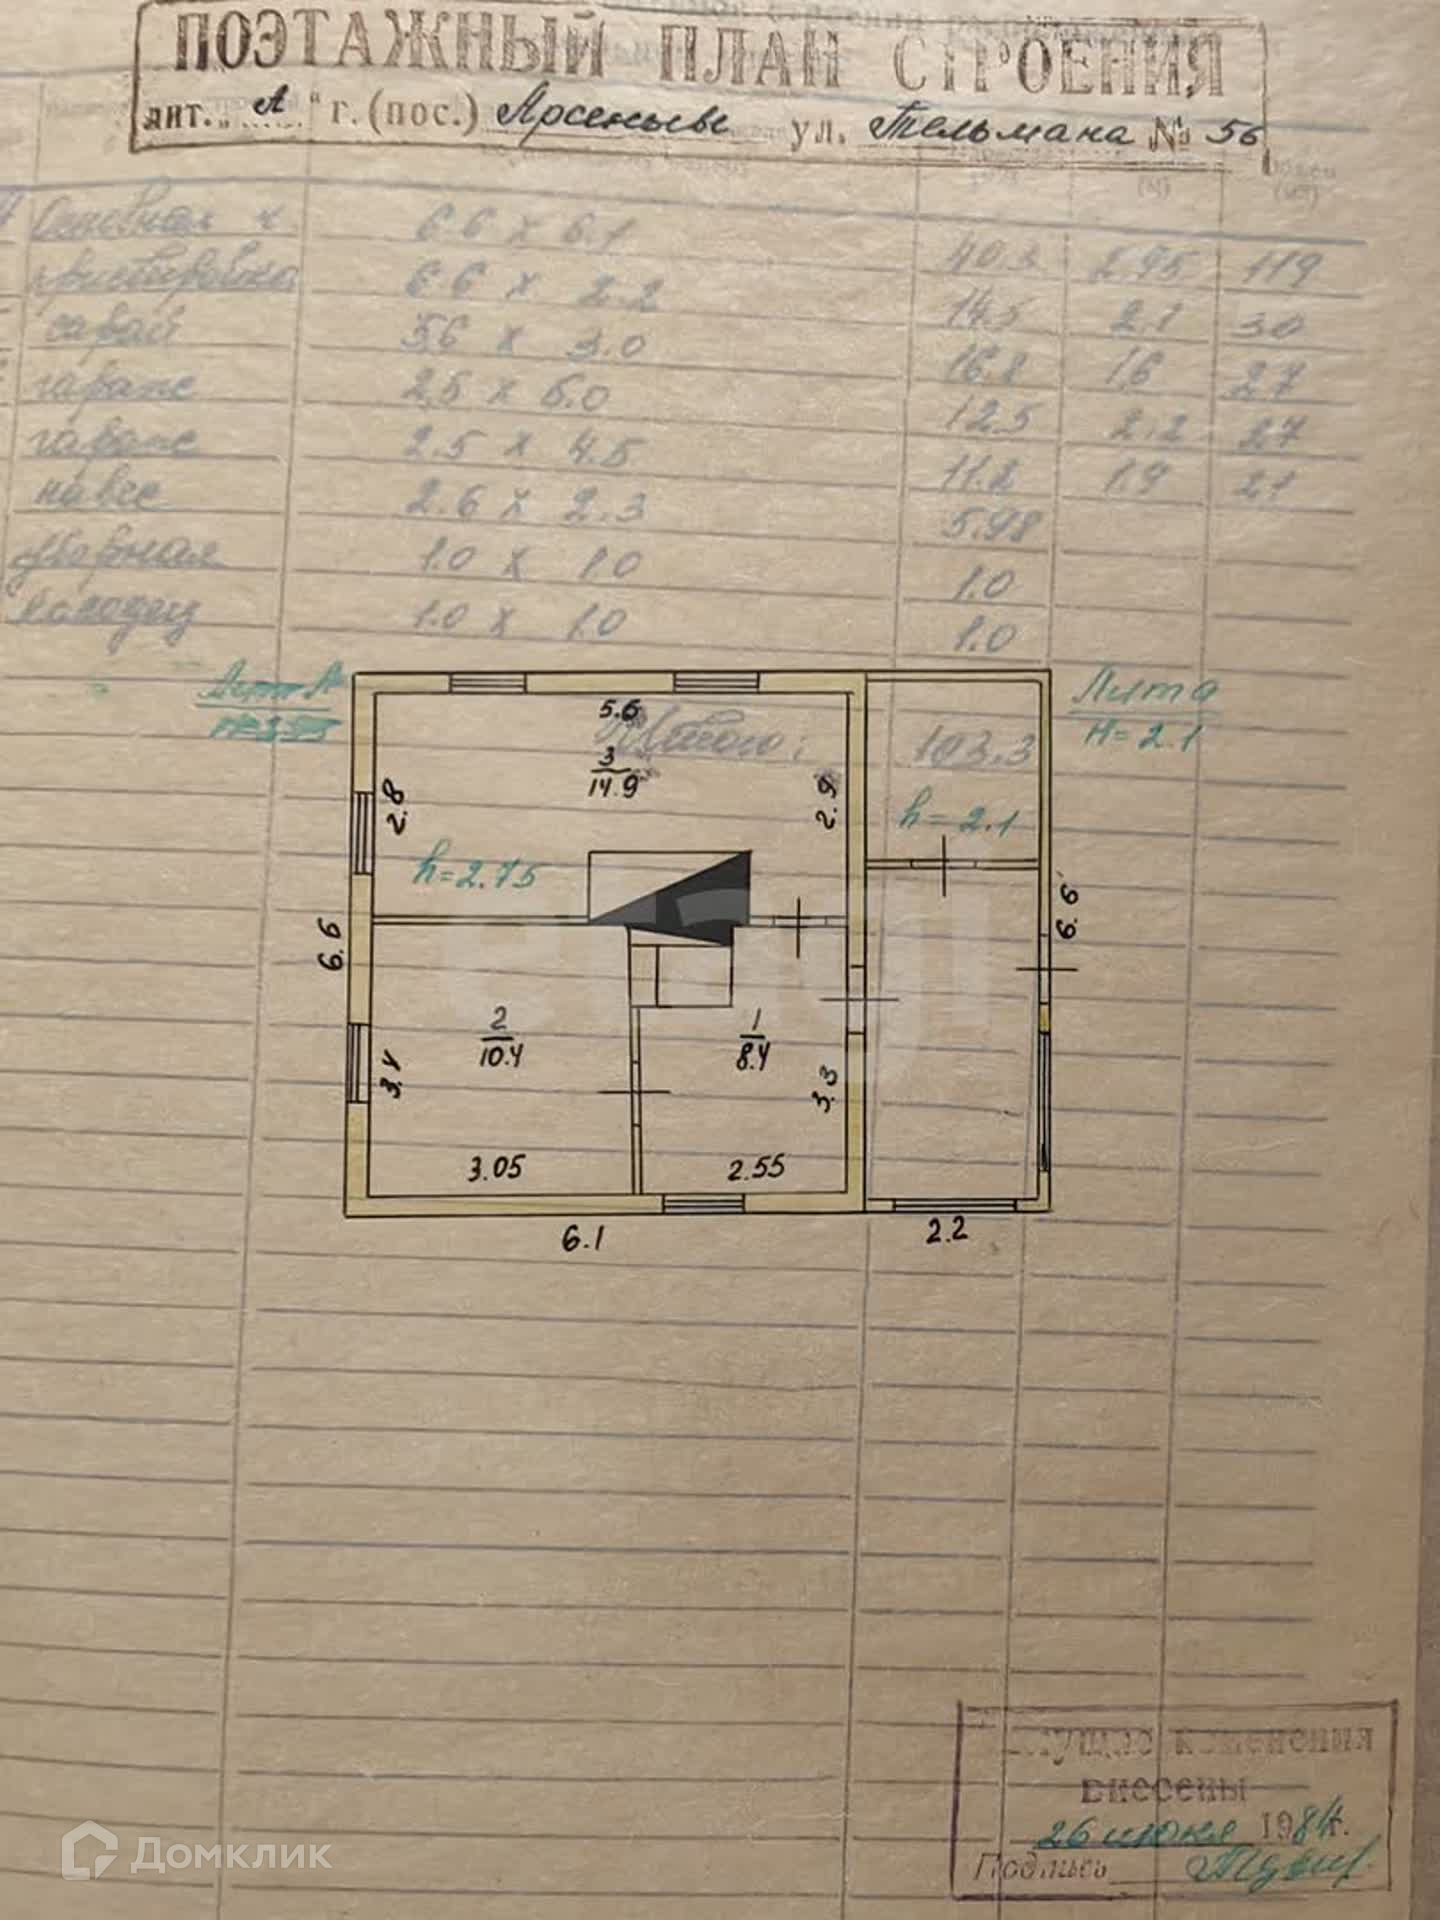 ПОЭТАЖНЫЙ ПЛАН СТРОЕНИЯ
лит. „А" г. (пос.) Арсеньев ул. Тельмана № 56
Основная ч. 6.6 x 6.1 40.3 2.95 119
пристройка 6.6 x 2.2 14.5 2.1 30
сарай 5.6 x 3.0 16.8 1.6 27
гараж 2.5 x 5.0 12.5 2.2 27
гараж 2.5 x 4.5 11.2 1.9 21
навес 2.6 x 2.3 5.98
уборная 1.0 x 1.0 1.0
колодец 1.0 x 1.0 1.0
Лит А
Лит а
H = 2.1
5.6
Итого: 103.3
3
14.9
2.8
2.9
h = 2.1
h = 2.75
6.6
6.6
2
10.4
1
8.4
3.4
3.3
3.05
2.55
6.1
2.2
Текущие изменения
внесены
26 июня 1984г.
Подпись
Домклик